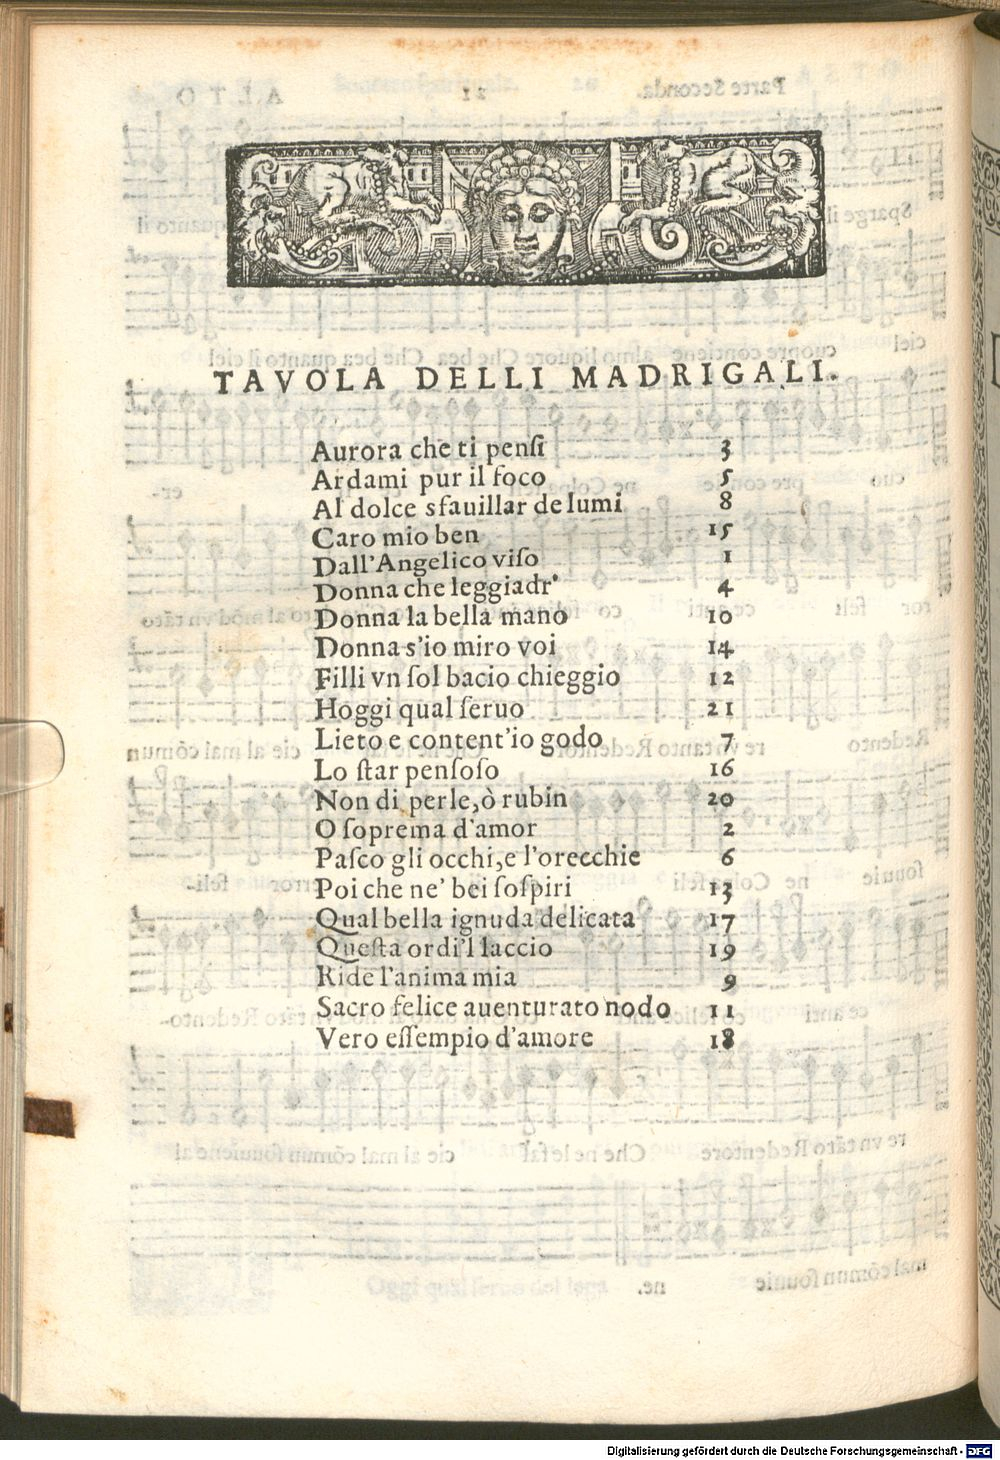 TAVOLA DELLI MADRIGALI.
Aurora che ti penſi 3
Ardami pur il foco 5
Al dolce sfauillar de lumi 8
Caro mio ben 15
Dall'Angelico viſo 1
Donna che leggiadr' 4
Donna la bella mano 10
Donna s'io miro voi 14
Filli vn ſol bacio chieggio 12
Hoggi qual ſeruo 21
Lieto e content'io godo 7
Lo ſtar penſoſo 16
Non di perle,ò rubin 20
O ſoprema d'amor 2
Paſco gli occhi,e l'orecchie 6
Poi che ne' bei ſoſpiri 13
Qual bella ignuda delicata 17
Queſta ordi'l laccio 19
Ride l'anima mia 9
Sacro felice auenturato nodo 11
Vero eſſempio d'amore 18
Digitalisierung gefördert durch die Deutsche Forschungsgemeinschaft - DFG